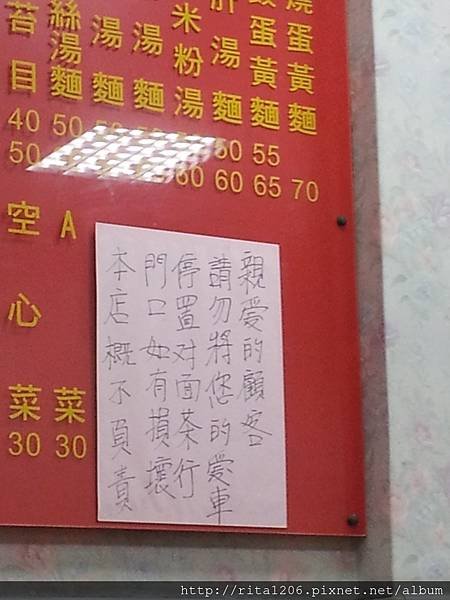 燒蛋黃麵
蛋黃麵
湯麵
米粉湯
湯麵
湯麵
絲湯麵
苔目
40 50
50
50 55
60 60 65 70
空心菜
30
A菜
30
親愛的顧客
請勿將您的愛車
停置对面茶行
門口如有損壞
本店概不負責
http://rita1206.pixnet.net/album